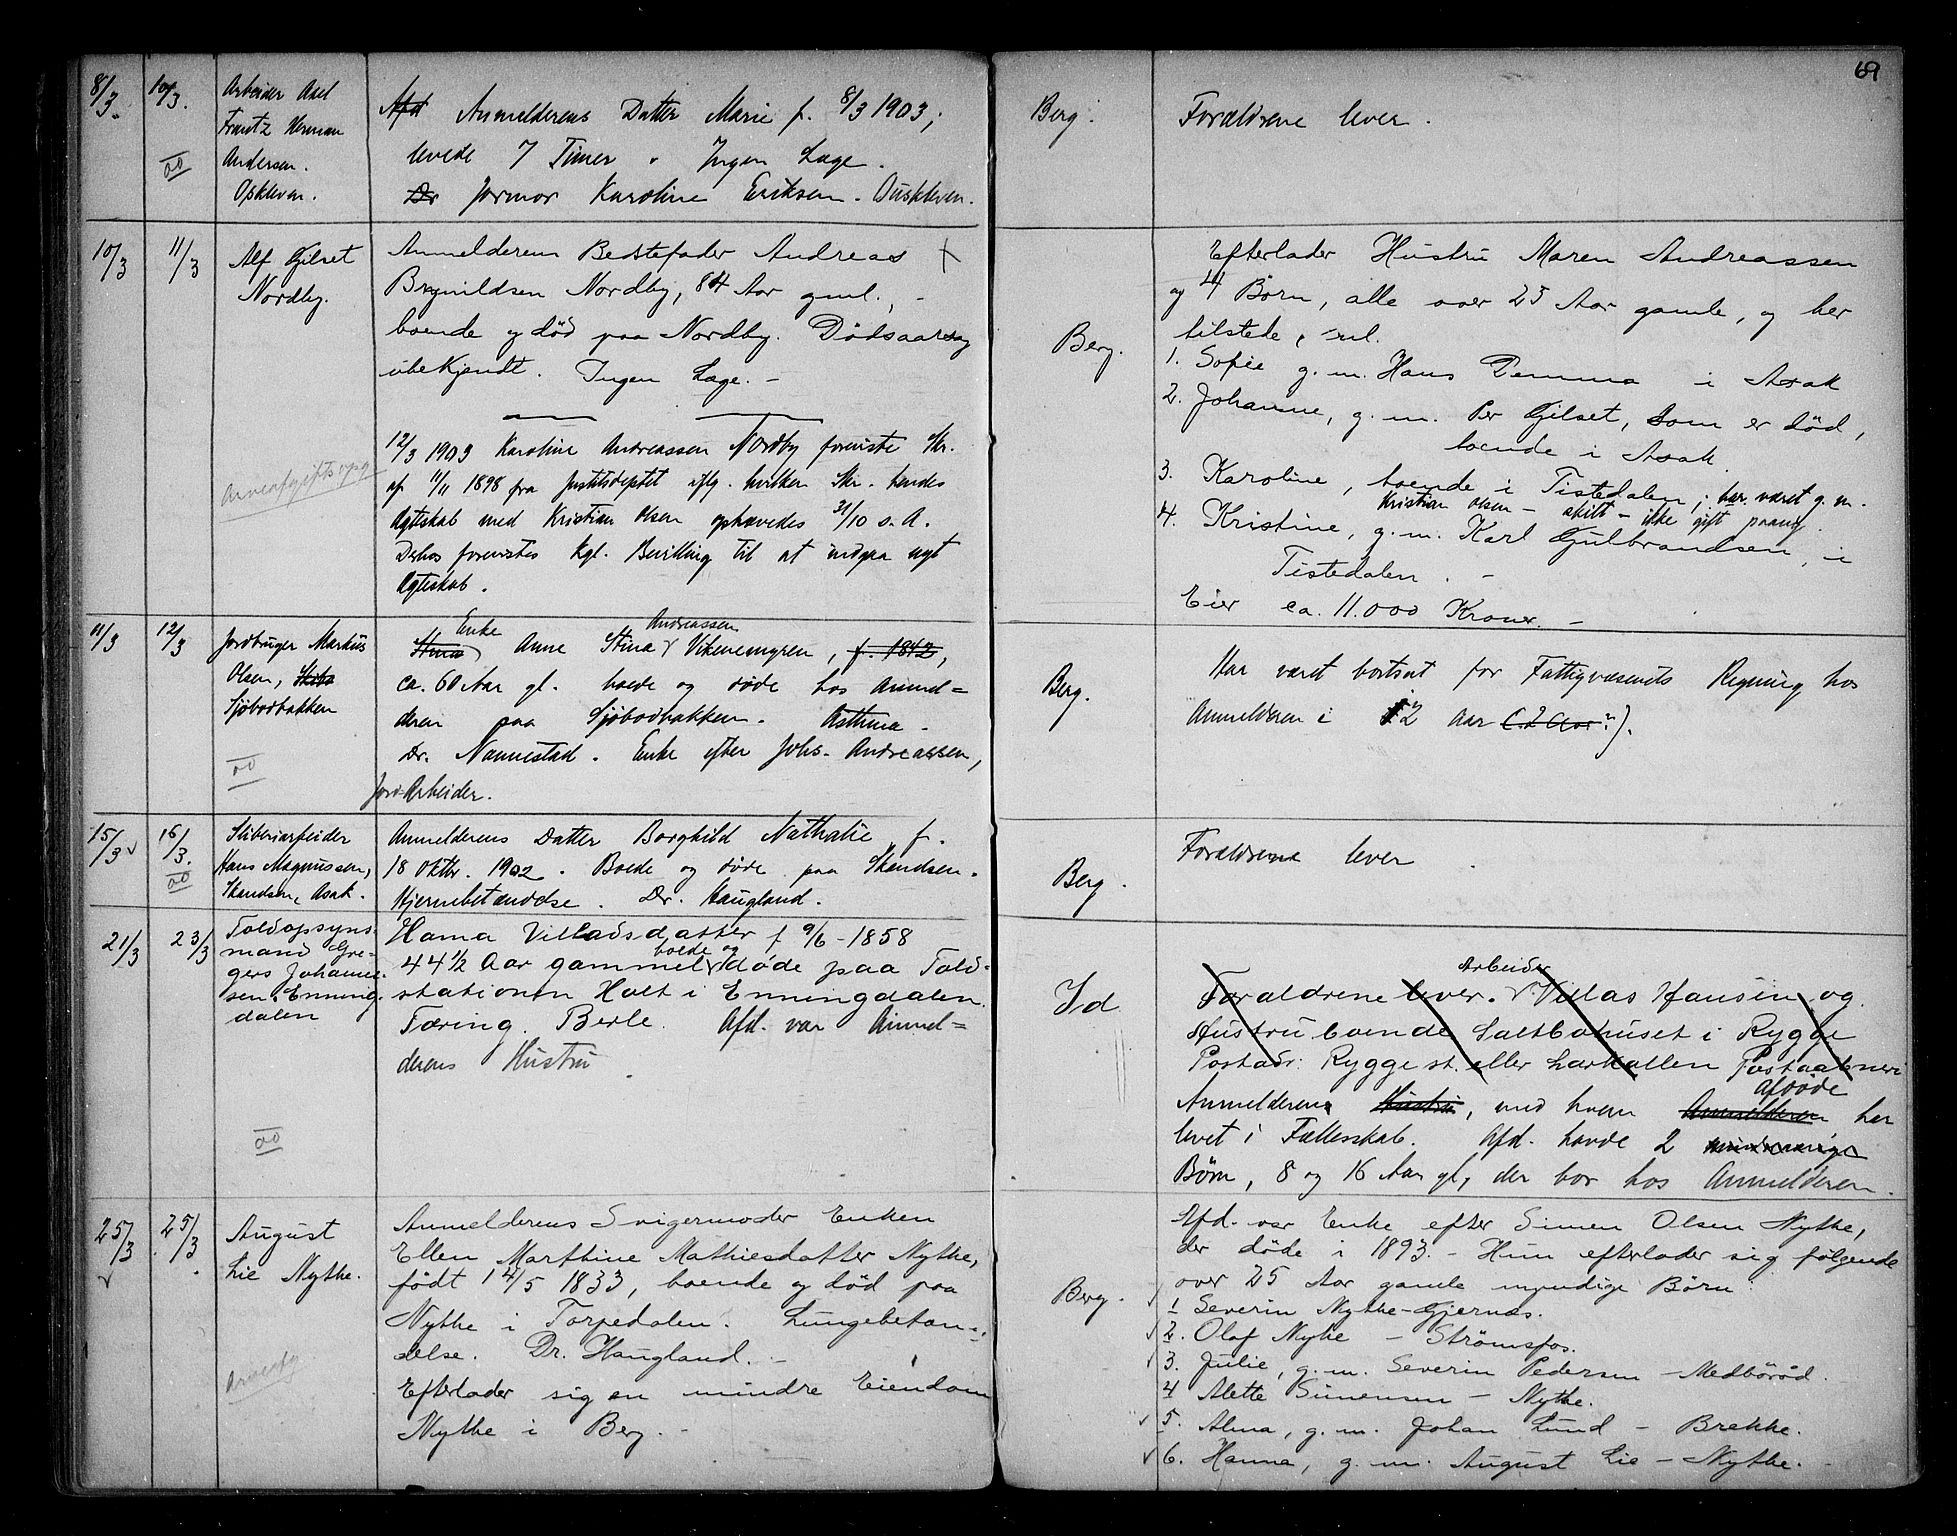 69
8/3. 10/3. Arbeider Axel
Frantz Herman
Andersen.
Opkleven.
Afd Anmelderens Datter Marie f. 8/3 1903;
levede 7 Timer. Ingen Læge.
Dr Jormor Karoline Eriksen. Auskleven.
Berg.
Forældrene lever.
10/3 11/3 Alf Gilset
Nordby.
Anmelderens Bedstefader Andreas
Brynildsen Nordby, 84 Aar gml., -
boende og død paa Nordby. Dødsaarsag
ubekjendt. Ingen Læge. -
12/3 1903 Karoline Andreassen Nordby foreviste Skr.
af 11/11 1898 fra Justitsdeptet iflg. hvilken Skr. hendes
Ægteskab med Kristian Olsen ophævedes 31/10 s. A.
Derhos forevistes Kgl. Bevilling til at indgaa nyt
Ægteskab.
Arveafgiftspg
Berg.
Efterlader Hustru Maren Andreassen
og 4 Børn, alle over 25 Aar gamle, og her
tilstede, nl.
1. Sofie g. m. Hans Demma i Asak
2. Johanne, g. m. Per Gilset, som er død,
boende i Asak.
3. Karoline, boende i Tistedalen; har været g. m.
Kristian Olsen - skilt - ikke gift paany.
4. Kristine, g. m. Karl Gulbrandsen, i
Tistedalen. -
Eier ca. 11.000 Kroner. -
11/3 12/3 Jordbruger Markus
Olsen,
Sjøbodbakken
Enke Andreassen
Stina Anne Stina Vikenemyren, f. 1842,
ca. 60 Aar gl. boede og døde hos Anmel=
deren paa Sjøbodbakken. Asthma.
Dr. Nannestad. Enke efter Johs. Andreassen,
Jord-Arbeider.
Berg.
Har været bortsat for Fattigvæsenets Regning hos
Anmelderen i 2 Aar (2 Aar?).
15/3 16/3. Sliberiarbeider
Hans Magnussen,
Skandsen, Asak.
Anmelderens Datter Borghild Nathalie f.
18 Oktbr. 1902. Boede og døde paa Skandsen.
Hjernebetændelse. Dr. Haugland.
Berg.
Forældrene lever
21/3 23/3 Toldopsyns-
mand Gre-
gers Johanne-
sen. Enning-
dalen
Hanna Villadsdatter f 9/6 - 1858
44 1/2 Aar gammel boede og døde paa Told-
stationen Holt i Enningdalen.
Tæring. Berle. Afd. var Anmel=
derens Hustru.
Id
Forældrene lever. Arbeider Villas Hansen og
Hustru boende Saltbohuset i Rygge
Postadr: Rygge st. eller Larkollen Postaabneri
Anmelderen Hustru, med hvem Anmelderen Afdøde har
levet i Fællesskab. Afd. havde 2 mindreaarige
Børn, 8 og 16 Aar gl, der bor hos Anmelderen.
25/3 25/3. August
Lie Nythe.
Anmelderens Svigermoder Enken
Ellen Marthine Mathiesdatter Nythe,
født 14/5 1833, boende og død paa
Nythe i Torpedalen. Lungebetæn-
delse. Dr. Haugland. -
Efterlader sig en mindre Eiendom
Nythe i Berg. -
Arveafg
Berg.
Afd. var Enke efter Simen Olsen Nythe,
der døde i 1893. - Hun efterlader sig følgende
over 25 Aar gamle myndige Børn:
1 Severin Nythe - Gjernæs.
2. Olaf Nythe - Strømsfos.
3. Julie, g. m. Severin Pedersen - Medbøröd.
4 Alette Simensen - Nythe.
5. Alma, g. m. Johan Lund - Brekke.
6. Hanna, g. m. August Lie - Nythe.